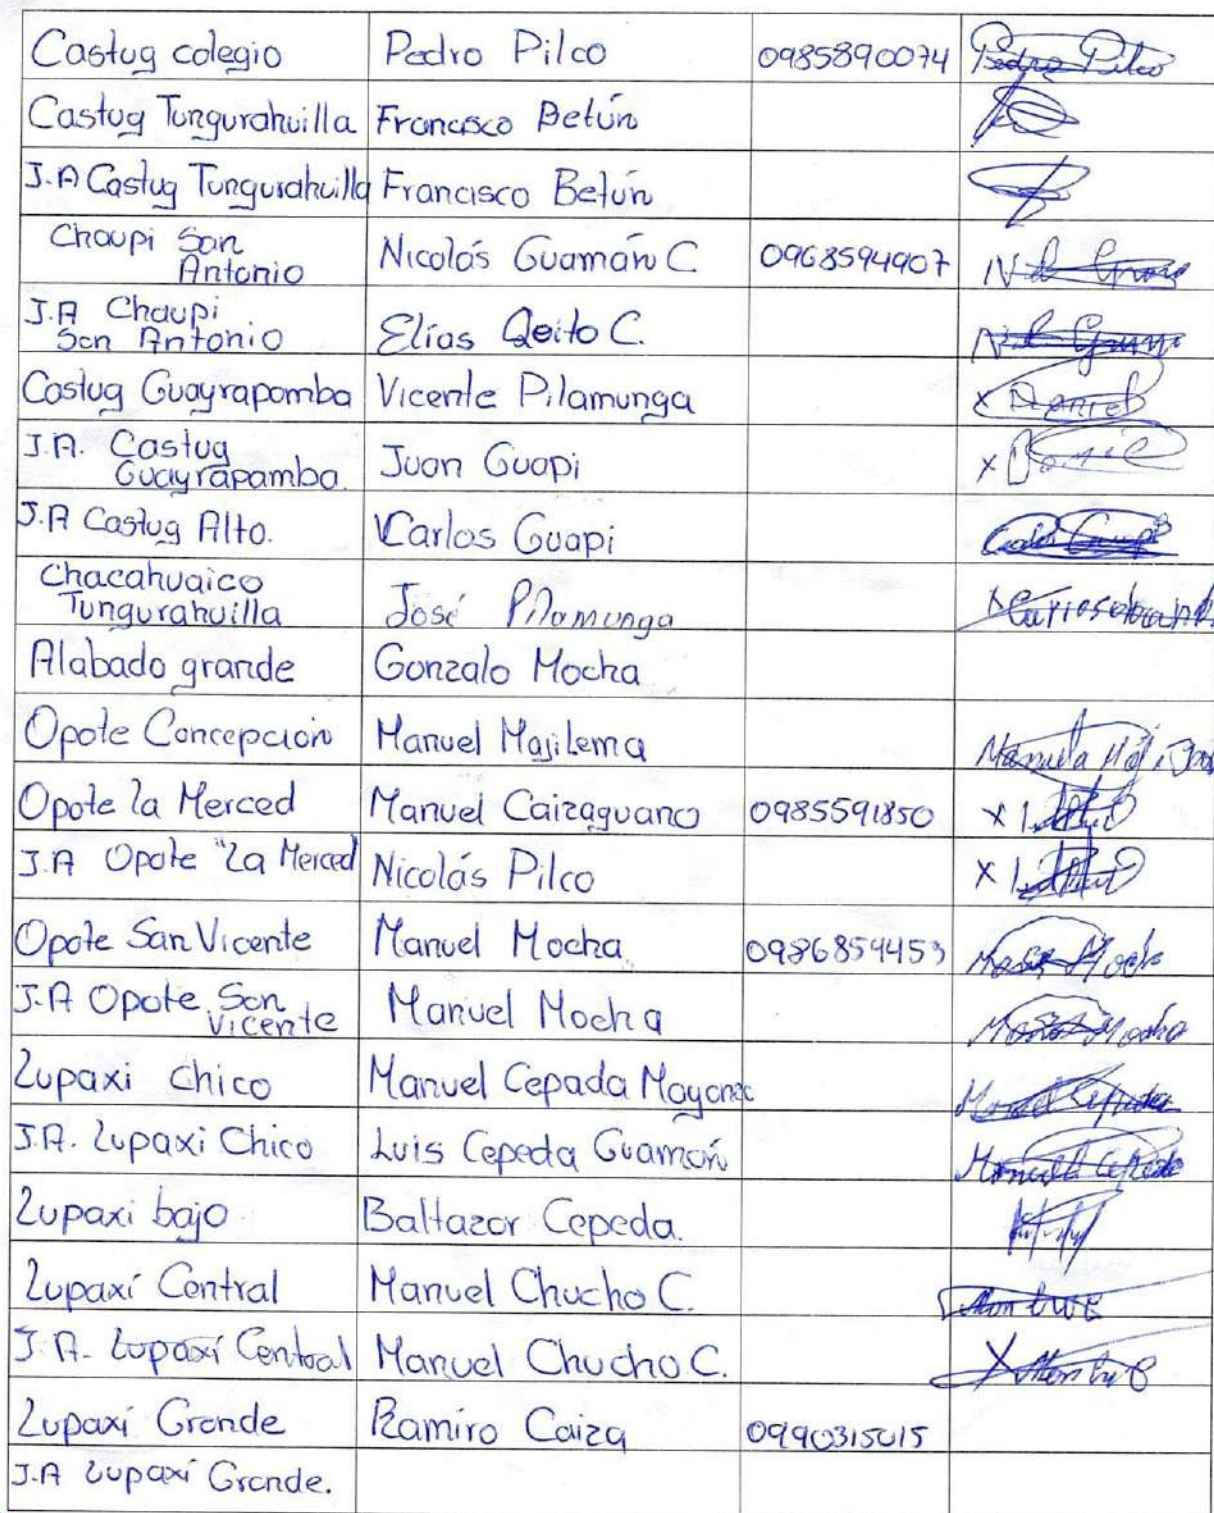 Castug colegio Pedro Pilco 0985890074 Pedro Pilco
Castug Tungurahuilla Francisco Betún
J.A Castug Tungurahuilla Francisco Betún
Chaupi San
Antonio Nicolás Guamán C 0968594907
J.A Chaupi
San Antonio Elías Qoito C.
Castug Guayrapamba Vicente Pilamunga X Daniel
J.A. Castug
Guayrapamba. Juan Guapi X Daniel
J.A Castug Alto. Carlos Guapi Carlos Guapi
Chacahuaico
Tungurahuilla José Pilamunga X
Alabado grande Gonzalo Mocha
Opote Concepción Manuel MajiLema Manuela
Opote la Merced Manuel Caizaguano 0985591850 X
J.A Opote "La Merced Nicolás Pilco X
Opote San Vicente Manuel Mocha. 0986859453
J.A Opote San
Vicente Manuel Mocha Mocha
Lupaxi chico Manuel Cepada Mayanec Manuel Cepeda
J.A. Lupaxi Chico Luis Cepeda Guamán Manuel Cepeda
Lupaxi bajo Baltazar Cepeda.
Lupaxí Central Manuel Chucho C.
J.A. Lupaxí Central Manuel Chucho C. X
Lupaxí Grande Ramiro Caiza 0990315015
J.A Lupaxí Grande.